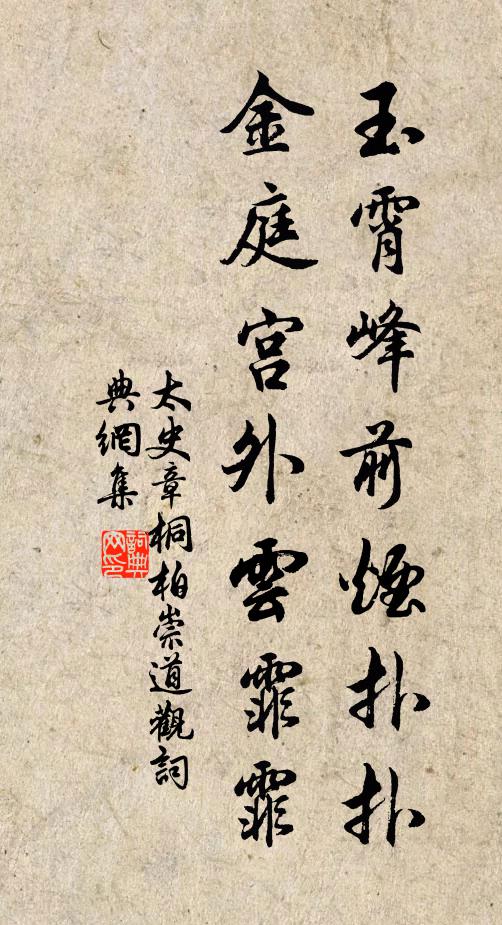 玉霄峰前煙扑扑
金庭宫外雲霏霏
太史章桐柏崇道觀詞
典網集
詞典網印